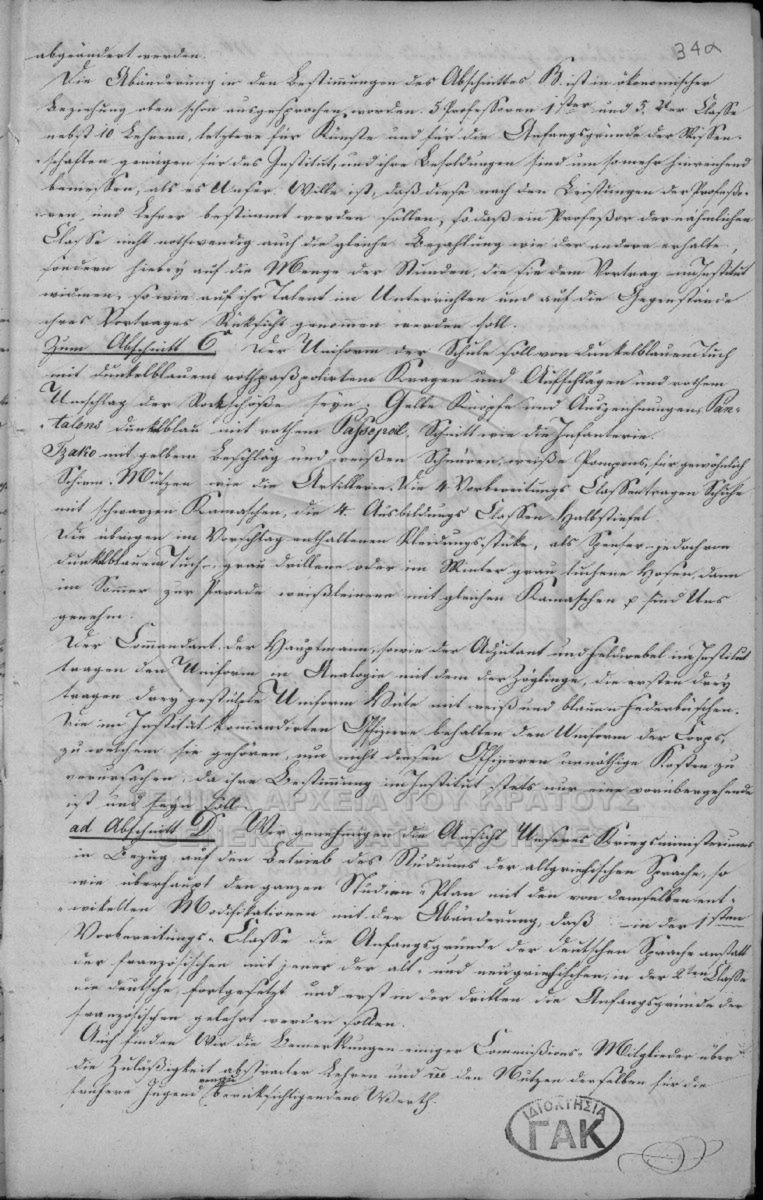 34α
abgeändert werden.
Die Abänderung in den Bestimmungen des Abschnittes B. ist in ökonomischer
Beziehung oben schon ausgesprochen worden. 5 Professoren 1ster und 5. 2ter Classe
nebst 10 Lehrern, letztere für Künste und für die Anfangsgründe der Wissen-
-schaften genügen für das Institut, und ihre Besoldungen sind um so mehr hinreichend
bemessen, als es Unser Wille ist, daß diese nach den Leistungen der Profeßo-
-ren und Lehrer bestimmt werden sollen, so daß ein Profeßor der nähmlichen
Classe nicht nothwendig auch die gleiche Bezahlung wie der andere erhalte,
sondern hiebey auf die Menge der Stunden, die sie dem Vortrag im Institut
widmen, so wie auf ihr Talent im Unterrichten und auf die Gegenstände
ihres Vortrages Rücksicht genommen werden soll.
Zum Abschnitt C. Der Uniform der Schule soll von dunkelblauem Tuch
mit dunkelblauem rothpaßpolirtem Kragen und Aufschlägen und rothem
Umschlag der Rockschöße seyn. Gelbe Knöpfe und Auszeichnungen, Pan-
-talons dunkelblau mit rothem Passepoil, Schnitt wie die Infanterie.
Tzako mit gelbem Beschläg und weißen Schnüren, weiße Pompons, für gewöhnlich
Schirm-Mützen wie die Artillerie. Die 4 Vorbereitungs Classen tragen Schuhe
mit schwarzen Kamaschen, die 4. Ausbildungs Classen Halbstiefel
Die übrigen im Vorschlag enthaltenen Kleidungsstücke, als Spenser jedoch von
dunkelblauem Tuch, grau drillene oder im Winter grau tuchene Hosen, dann
im Sommer zur Parade weißleinene mit gleichen Kamaschen p sind Uns
genehm.
Der Commandant, der Hauptmann, sowie der Adjutant und Feldwebel im Institut
tragen den Uniform in Analogie mit dem der Zöglinge, die ersten drey
tragen drey gestülpte Uniform Hüte mit weiß und blauen Federbüschen.
Die im Institut kommandirten Offiziere behalten den Uniform der Corps,
zu welchem sie gehören, um nicht diesen Offizieren unnöthige Kosten zu
verursachen, da ihre Bestimmung im Institut stets nur eine vorübergehende
ist und seyn soll.
ad Abschnitt D. Wir genehmigen die Ansicht Unseres Kriegsministeriums
in Bezug auf den Betrieb des Studiums der altgriechischen Sprache, so
wie überhaupt den ganzen Studien-Plan mit den von demselben ent-
-wikelten Modifikationen mit der Abänderung, daß in der 1sten
Vorbereitungs-Classe die Anfangsgründe der deutschen Sprache anstatt
der französischen mit jener der alt- und neugriechischen, in der 2ten Classe
die deutsche fortgesetzt und erst in der dritten die Anfangsgründe der
französischen gelehrt werden sollen.
Auch finden Wir die Bemerkungen einiger Commißions-Mitglieder über
die Zuläßigkeit abstracter Lehren und den Nutzen derselben für die
frühere Jugend berüksichtigendens Werth.
ΓΕΝΙΚΑ ΑΡΧΕΙΑ ΤΟΥ ΚΡΑΤΟΥΣ
GENERAL STATE ARCHIVES
ΙΔΙΟΚΤΗΣΙΑ
ΓΑΚ